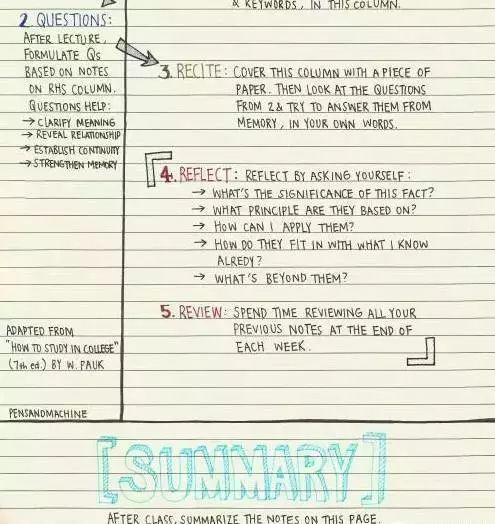 & KEYWORDS, IN THIS COLUMN.
2. QUESTIONS:
AFTER LECTURE,
FORMULATE Qs
BASED ON NOTES
ON RHS COLUMN.
QUESTIONS HELP:
→ CLARIFY MEANING
→ REVEAL RELATIONSHIP
→ ESTABLISH CONTINUITY
→ STRENGTHEN MEMORY
3. RECITE: COVER THIS COLUMN WITH A PIECE OF
PAPER. THEN LOOK AT THE QUESTIONS
FROM 2 & TRY TO ANSWER THEM FROM
MEMORY, IN YOUR OWN WORDS.
4. REFLECT: REFLECT BY ASKING YOURSELF:
→ WHAT'S THE SIGNIFICANCE OF THIS FACT?
→ WHAT PRINCIPLE ARE THEY BASED ON?
→ HOW CAN I APPLY THEM?
→ HOW DO THEY FIT IN WITH WHAT I KNOW
ALREDY?
→ WHAT'S BEYOND THEM?
5. REVIEW: SPEND TIME REVIEWING ALL YOUR
PREVIOUS NOTES AT THE END OF
EACH WEEK.
ADAPTED FROM
"HOW TO STUDY IN COLLEGE"
(7th ed.) BY W. PAUK
PENSANDMACHINE
[SUMMARY]
AFTER CLASS, SUMMARIZE THE NOTES ON THIS PAGE.